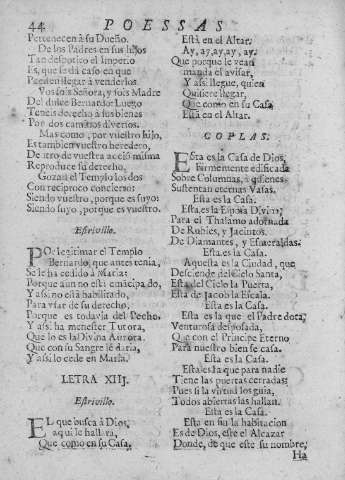 44 POESSAS
Pertenecen à su Dueño.
De los Padres en sus hijos
Tan despotico el Imperio
Es, que se dà caso en que
Pueden llegar à venderlos.
Vos sois Señora, y sois Madre
Del dulce Bernardo: Luego
Teneis derecho à sus bienes
Por dos caminos diversos.
Mas como, por vuestro hijo,
Es tambien vuestro heredero,
Dentro de vuestra accio misma
Reproduce su derecho.
Gozad el Templo los dos
Con reciproco concierto:
Siendo vuestro, porque es suyo:
Siendo suyo, porque es vuestro.
Estrivillo.
POr legitimar el Templo
Bernardo, que antes tenia,
Se le ha cedido à Maria:
Porque aun no està emācipado,
Y assi no està habilitado,
Para usar de su derecho,
Porque es todavia del Pecho.
Y assi ha menester Tutora,
Que lo es la Divina Aurora.
Que con su Sangre le daria,
Y assi lo cede en Maria.
LETRA XIIJ.
Estrivillo.
EL que busca à Dios,
aqui le hallarà,
Que como en su Casa,
Està en el Altar.
Ay, ay, ay, ay, ay.
Que porque le vean
manda el avisar,
Y assi llegue, quien
Quisiere llegar,
Que como en su Casa
Està en el Altar.
COPLAS.
ESta es la Casa de Dios,
firmemente edificada
Sobre Columnas, à quienes
Sustentan eternas Vasas.
Esta es la Casa.
Esta, es la Esposa Divina,
Para el Thalamo adornada
De Rubies, y Jacintos.
De Diamantes, y Esmeraldas.
Esta es la Casa.
Aquesta es la Ciudad, que
Desciende del Cielo Santa,
Esta del Cielo la Puerta,
Esta de Jacob la Escala.
Esta es la Casa.
Esta es la que el Padre dota,
Venturosa desposada,
Que con el Principe Eterno
Para nuestro bien se casa.
Esta es la Casa.
Esta es la que para nadie
Tiene las puertas cerradas:
Pues si la virtud los guia,
Todos abiertas las hallan.
Esta es la Casa.
Esta en su la habitacion
Es de Dios, este el Alcazar
Donde, de que este su nombre,
Ha